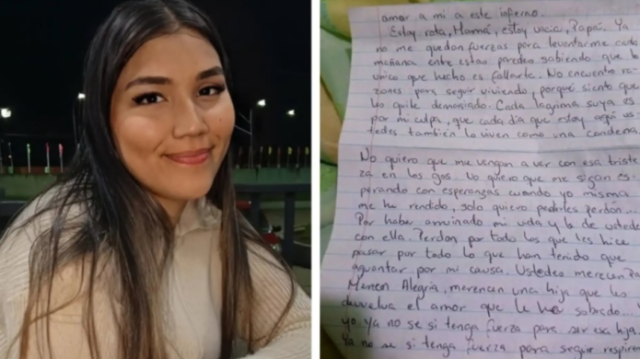 amor a mi a este infierno.
Estoy rota, Mamá, estoy vacia, Papá. Ya
no me quedan fuerzas para levantarme cada
mañana entre estas paredes sabiendo que lo
unico que hecho es fallarte. No encuentro ra-
zones para seguir viviendo, porque siento que
los quite demaciado. Cada lagrima suya es
por mi culpa, que cada dia que estoy aqui us
tedes tambien lo viven como una condena
No quiero que me vengan a ver con esa triste
za en los ojos. No quiero que me sigan es-
perando con esperanzas cuando yo misma
me he rendido, solo quiero pedirles perdón...
Por haber arruinado mi vida y la de ustedes
con ella. Perdon por todo los que les hice
pasar por todo lo que han tenido que
aguantar por mi causa. Ustedes merecen
Merecen Alegria, merecen una hija que les
devuelva el amor que le ha sobrado...
yo ya no se si tenga fuerza para ser esa hija
Ya no se si tenga fuerza para seguir respiran